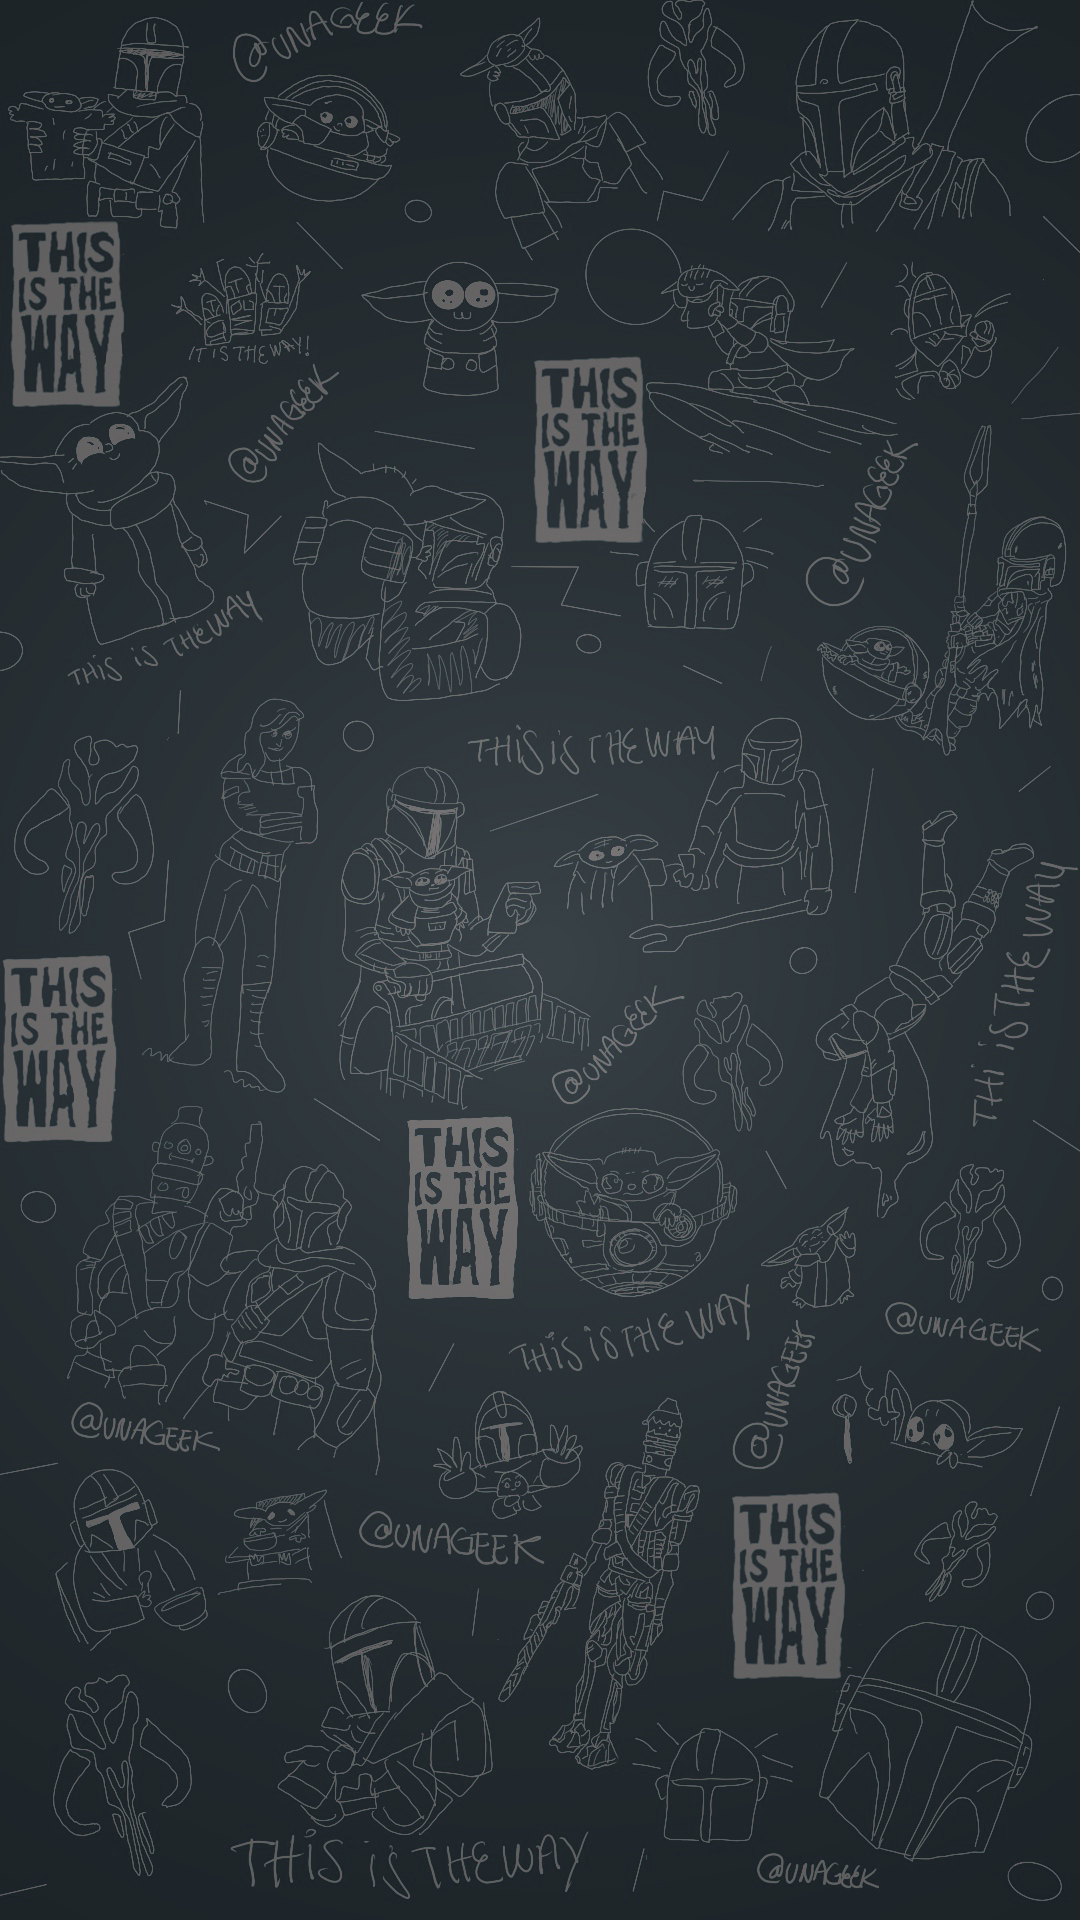 @UNAGEEK
THIS
IS THE
WAY
IT IS THE WAY!
THIS
IS THE
WAY
@UNAGEEK
@UNAGEEK
THIS iS THE WAY
THIS iS THE WAY
THIS
IS THE
WAY
THi iS THE WAY
@UNAGEEK
THIS
IS THE
WAY
THIS iS THE WAY
@UNAGEEK
@UNAGEEK
@UNAGEEK
@UNAGEEK
THIS
IS THE
WAY
THIS iS THE WAY
@UNAGEEK